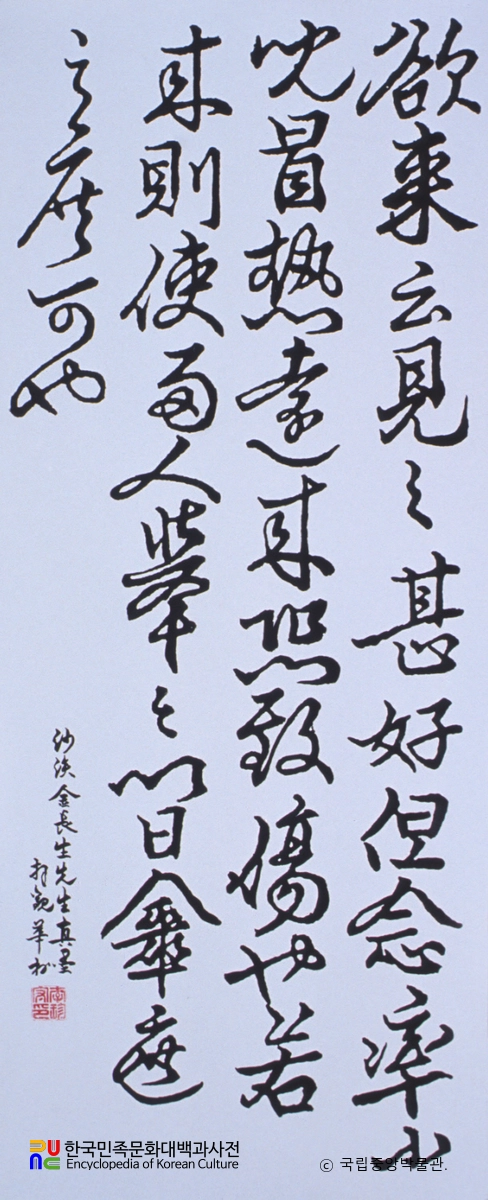 欲來云見之甚好但念率少
冒熱遠來恐致傷也若
來則使兩人擧之以日傘遮
之庶可也
沙溪金長生先生真墨
拜觀
한국민족문화대백과사전
Encyclopedia of Korean Culture
© 국립중앙박물관.